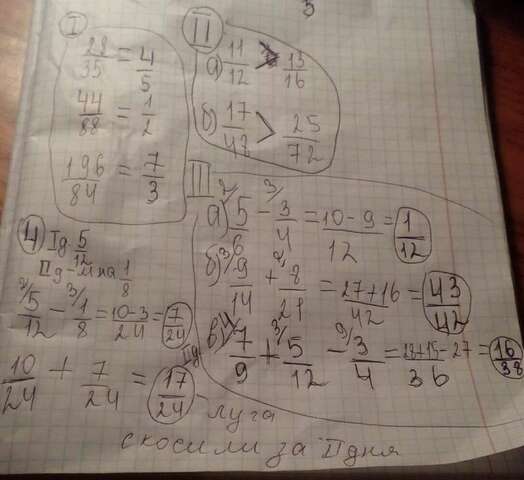 I
28/35 = 4/5
44/88 = 1/2
196/84 = 7/3
II
а) 11/12 > 15/16
б) 17/48 > 25/72
III
а) 5/6 - 3/4 = 10-9/12 = 1/12
б) 9/14 + 8/21 = 27+16/42 = 43/42
в) 7/9 + 5/12 - 3/4 = 28+15-27/36 = 16/38
4 Iд 5/12
IIд - М на 1/8
5/12 - 1/8 = 10-3/24 = 7/24 IIд
10/24 + 7/24 = 17/24 - луга
скосили за II дня